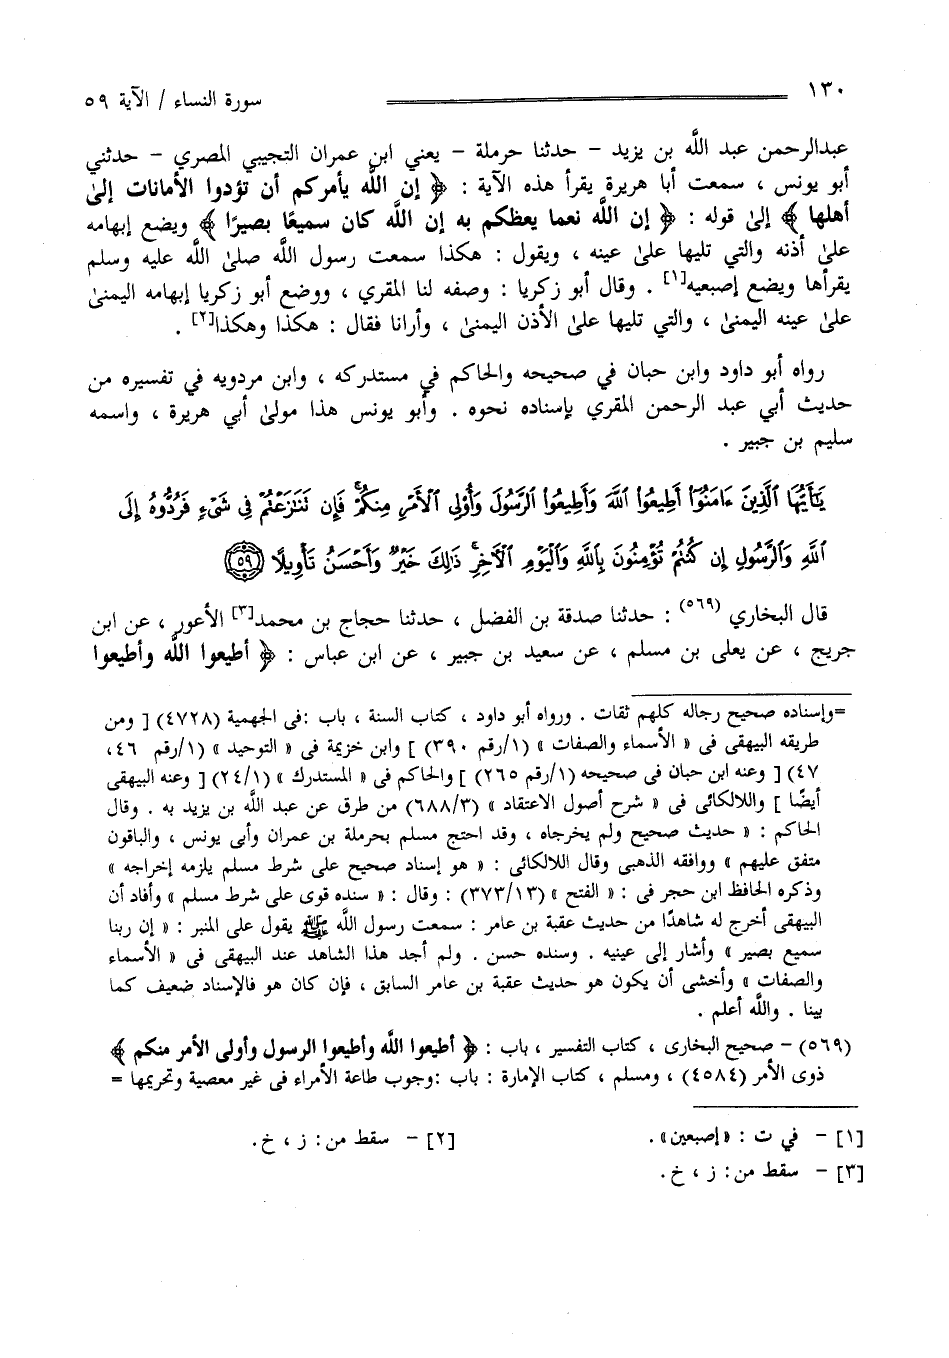 ١٣٠ سورة النساء / الآية ٥٩
عبدالرحمن عبد اللَّه بن يزيد – حدثنا حرملة – يعني ابن عمران التجيبي المصري – حدثني
أبو يونس ، سمعت أبا هريرة يقرأ هذه الآية : ﴿ إن اللَّه يأمركم أن تؤدوا الأمانات إلىٰ
أهلها ﴾ إلىٰ قوله : ﴿ إن اللَّه نعما يعظكم به إن اللَّه كان سميعًا بصيرًا ﴾ ويضع إبهامه
علىٰ أذنه والتي تليها علىٰ عينه ، ويقول : هكذا سمعت رسول اللَّه صلىٰ اللَّه عليه وسلم
يقرأها ويضع إصبعيه[١] . وقال أبو زكريا : وصفه لنا المقري ، ووضع أبو زكريا إبهامه اليمنىٰ
علىٰ عينه اليمنىٰ ، والتي تليها علىٰ الأذن اليمنىٰ ، وأرانا فقال : هكذا وهكذا[٢] .
رواه أبو داود وابن حبان في صحيحه والحاكم في مستدركه ، وابن مردويه في تفسيره من
حديث أبي عبد الرحمن المقري بإسناده نحوه . وأبو يونس هذا مولىٰ أبي هريرة ، واسمه
سليم بن جبير .
يَٰٓأَيُّهَا ٱلَّذِينَ ءَامَنُوٓا۟ أَطِيعُوا۟ ٱللَّهَ وَأَطِيعُوا۟ ٱلرَّسُولَ وَأُو۟لِى ٱلْأَمْرِ مِنكُمْ ۖ فَإِن تَنَٰزَعْتُمْ فِى شَىْءٍ فَرُدُّوهُ إِلَى
ٱللَّهِ وَٱلرَّسُولِ إِن كُنتُمْ تُؤْمِنُونَ بِٱللَّهِ وَٱلْيَوْمِ ٱلْأَخِرِ ۚ ذَٰلِكَ خَيْرٌ وَأَحْسَنُ تَأْوِيلًا ٥٩
قال البخاري (٥٦٩) : حدثنا صدقة بن الفضل ، حدثنا حجاج بن محمد[٣] الأعور ، عن ابن
جريج ، عن يعلى بن مسلم ، عن سعيد بن جبير ، عن ابن عباس : ﴿ أطيعوا اللَّه وأطيعوا
=وإسناده صحيح رجاله كلهم ثقات . ورواه أبو داود ، كتاب السنة ، باب :فى الجهمية (٤٧٢٨) [ ومن
طريقه البيهقى فى « الأسماء والصفات » (١/رقم ٣٩٠) ] وابن خزيمة فى « التوحيد » (١/رقم ٤٦،
٤٧) [ وعنه ابن حبان فى صحيحه (١/رقم ٢٦٥) ] والحاكم فى « المستدرك » (٢٤/١) [ وعنه البيهقى
أيضًا ] واللالكائى فى « شرح أصول الاعتقاد » (٦٨٨/٣) من طرق عن عبد اللَّه بن يزيد به . وقال
الحاكم : « حديث صحيح ولم يخرجاه ، وقد احتج مسلم بحرملة بن عمران وأبى يونس ، والباقون
متفق عليهم » ووافقه الذهبي وقال اللالكائى : « هو إسناد صحيح على شرط مسلم يلزمه إخراجه »
وذكره الحافظ ابن حجر فى : « الفتح » (٣٧٣/١٣) : وقال : « سنده قوى على شرط مسلم » وأفاد أن
البيهقى أخرج له شاهدًا من حديث عقبة بن عامر : سمعت رسول اللَّه ﷺ يقول على المنبر : « إن ربنا
سميع بصير » وأشار إلى عينيه . وسنده حسن . ولم أجد هذا الشاهد عند البيهقى فى « الأسماء
والصفات » وأخشى أن يكون هو حديث عقبة بن عامر السابق ، فإن كان هو فالإسناد ضعيف كما
بينا . واللَّه أعلم .
(٥٦٩) – صحيح البخارى ، كتاب التفسير ، باب : ﴿ أطيعوا اللَّه وأطيعوا الرسول وأولى الأمر منكم ﴾
ذوى الأمر (٤٥٨٤) ، ومسلم ، كتاب الإمارة : باب :وجوب طاعة الأمراء فى غير معصية وتحريمها =
[١] – في ت : «إصبعين». [٢] – سقط من: ز ، خ.
[٣] – سقط من: ز ، خ.